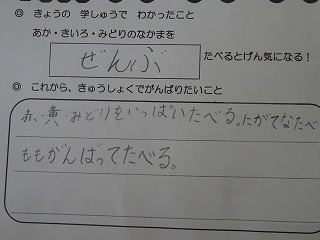 ◎ きょうの 学しゅうで わかったこと
あか・きいろ・みどりのなかまを
ぜんぶ たべるとげん気になる！
◎ これから、きゅうしょくでがんばりたいこと
赤、黄・みどりをいっぱいたべる。にがてなたべ
ももがんばってたべる。